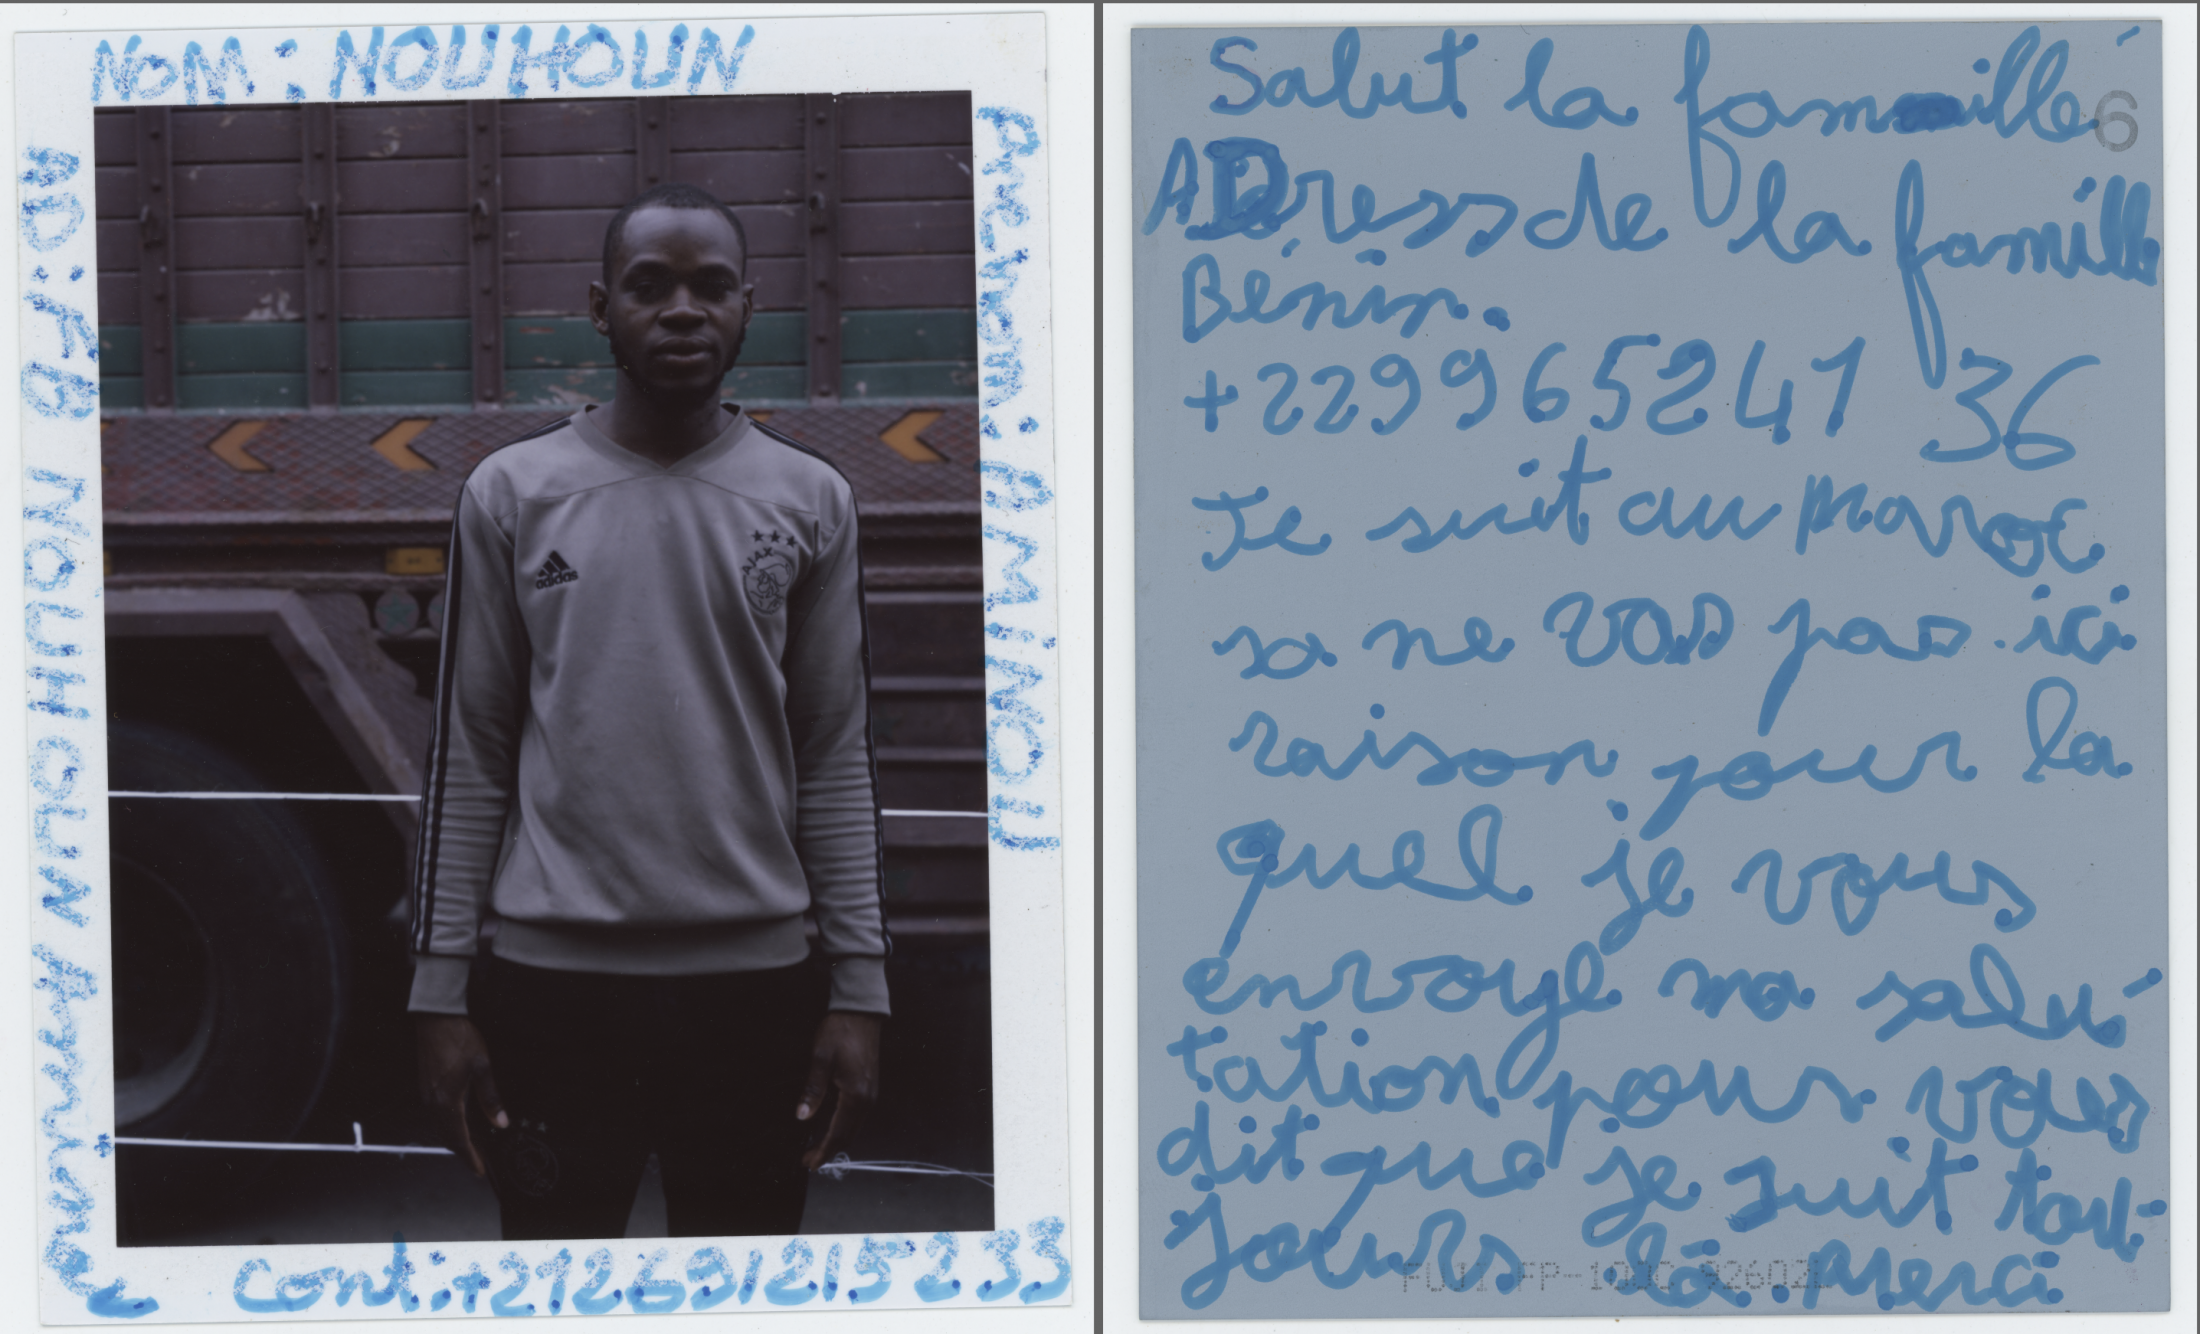 NOM: NOUHOUN
Prenom: AMINOU
AD: FB NOUHOUN Amine
Cont: +212691215233
adidas
AJAX
Salut la famaillé
6
ADress de la famille
Bénin.
+22996524136
Je suit au maroc
sa ne vas pas ici
raison pour la
quel je vous
envoye ma salu
tation pour vous
dit que je suit tou-
jours là Merci